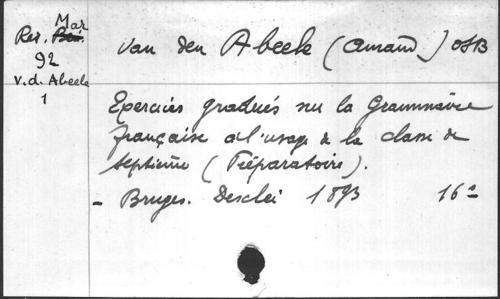 Mar
Res. Bés.
92
v. d. Abeele
1
Van den Abeele (Amand) OSB
Exercices gradués sur la Grammaire
française à l'usage de la classe de
septième (Préparatoire).
- Bruges. Desclée 1893 16°